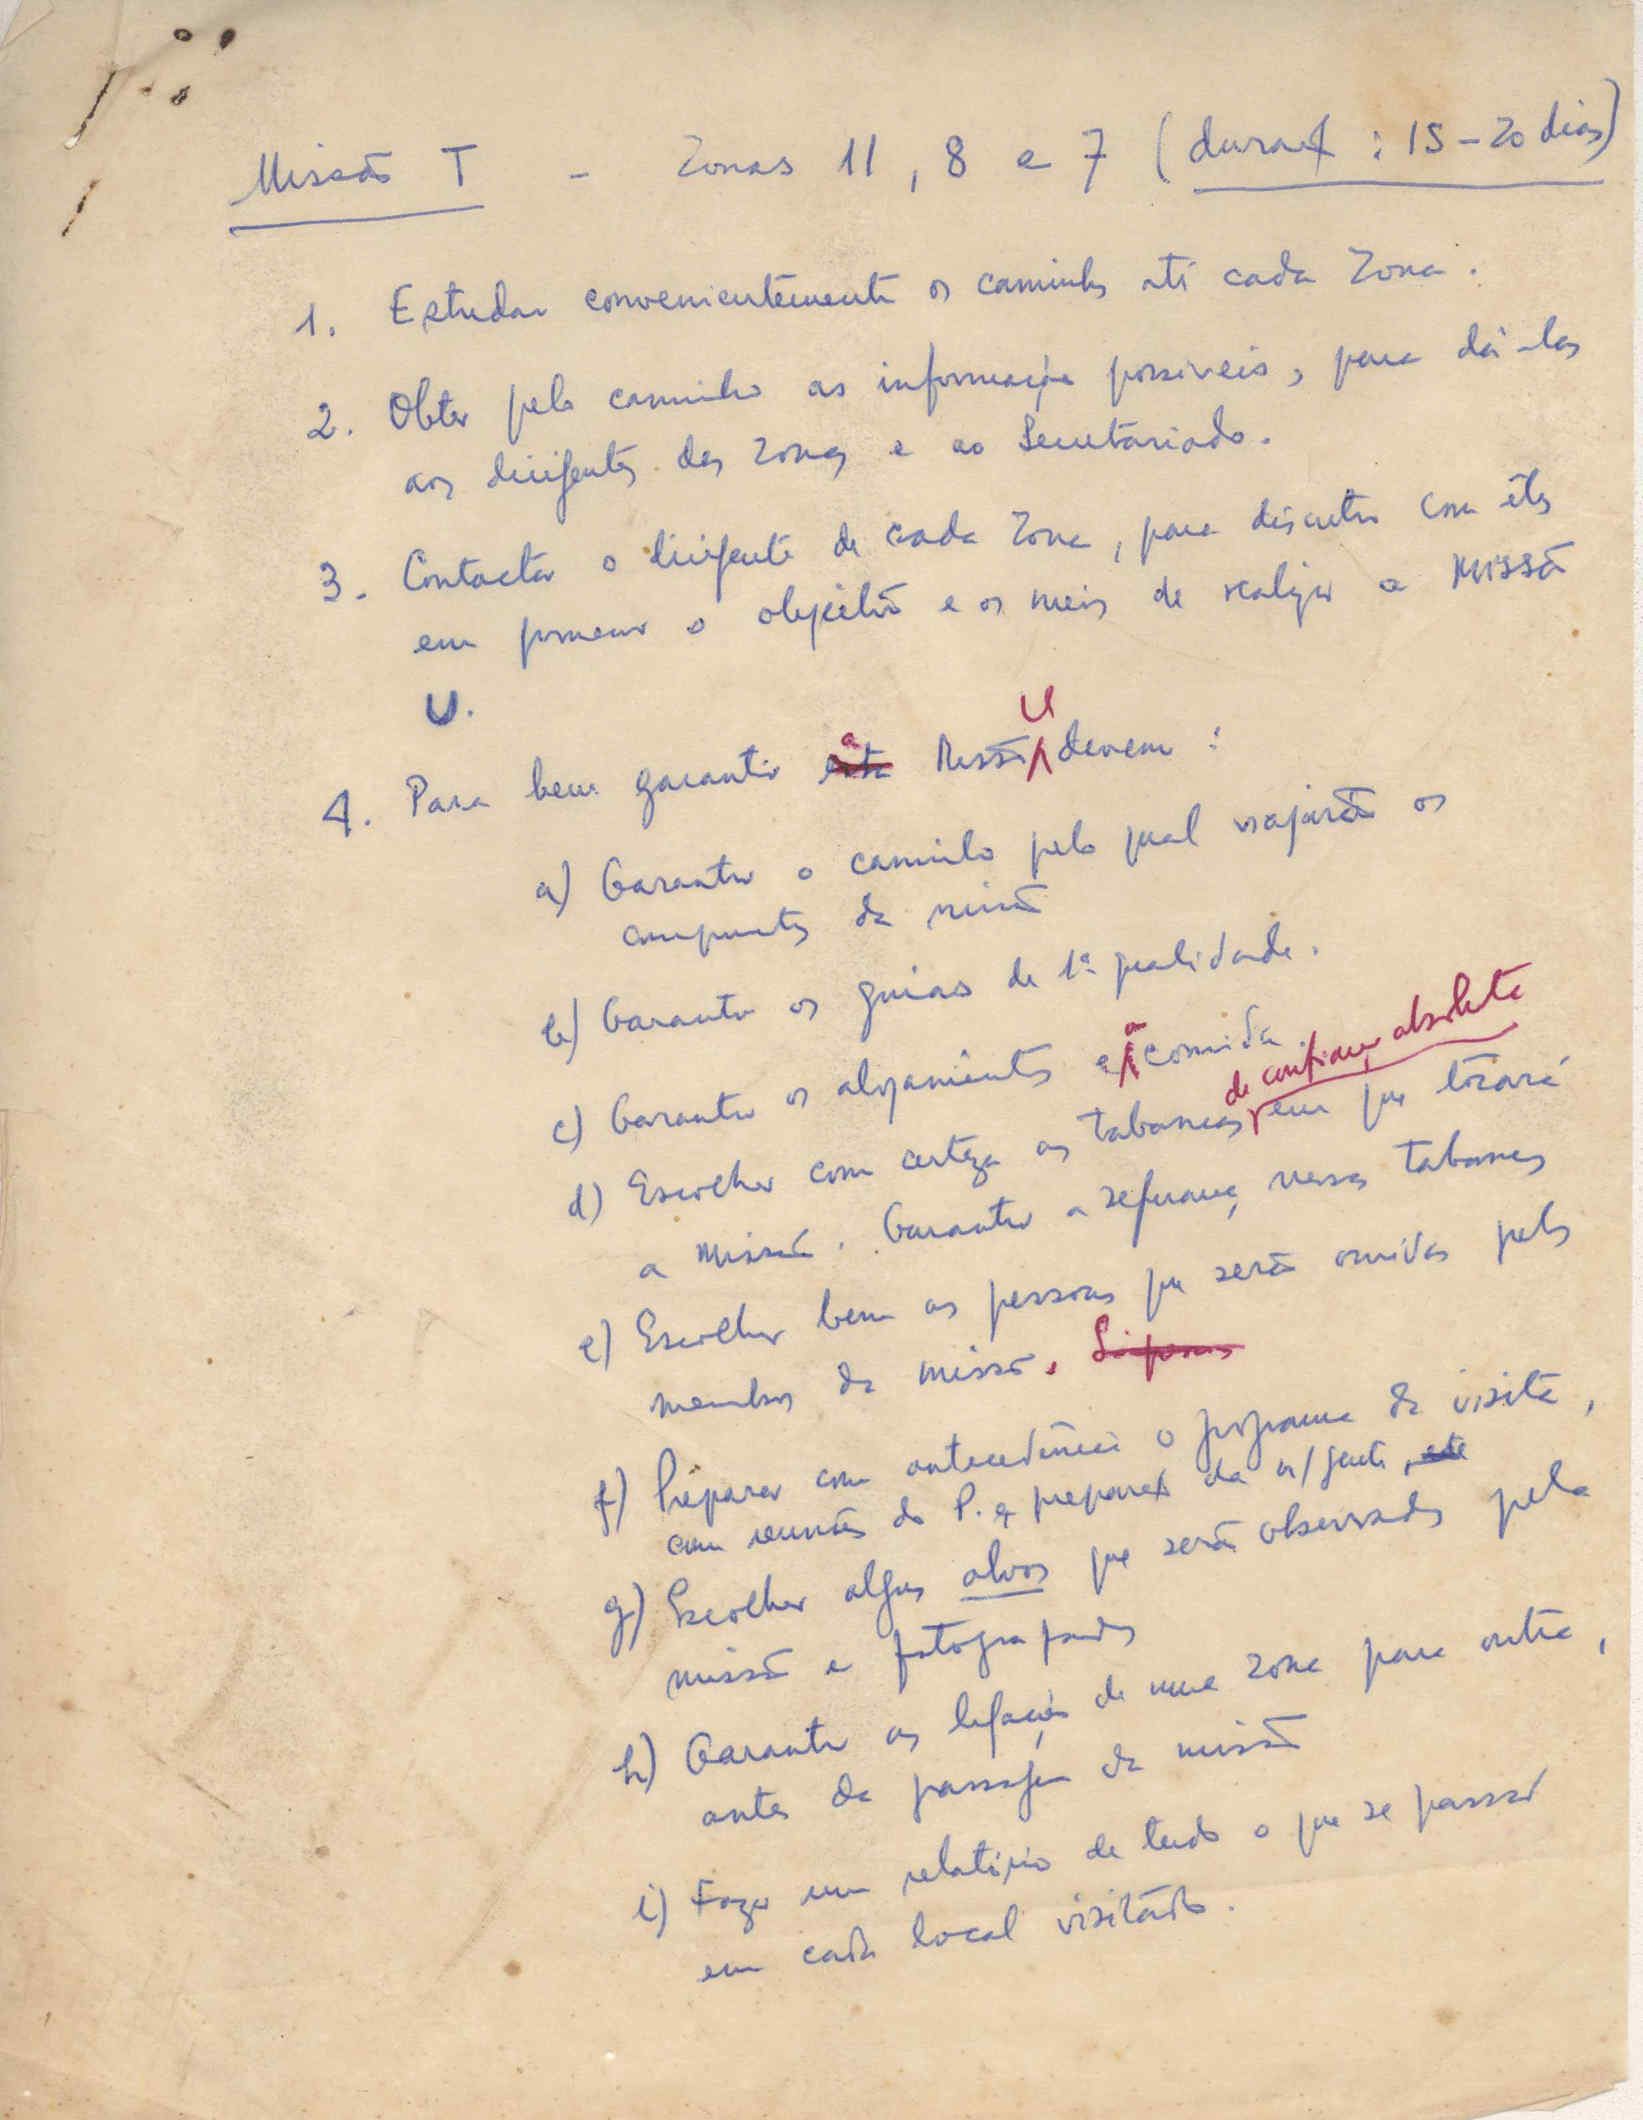 Missão T - Zonas 11, 8 e 7 (duraç : 15-20 dias)
1. Estudar convenientemente os caminhos até cada Zona.
2. Obter pelo caminho as informações possíveis, para dá-las
aos dirigentes das Zonas e ao Secretariado.
3. Contactar o dirigente de cada Zona, para discutir com êles
em pormenor o objectivo e os meios de realizar a Missão
U.
4. Para bem garantir a Missão U devem :
a) Garantir o caminho pelo qual viajarão os
componentes da missão
b) Garantir os guias de 1ª qualidade.
c) Garantir os alojamentos e a comida.
d) Escolher com certeza as tabancas de confiança absoluta em que tocará
a missão. Garantir a segurança nessas tabancas
e) Escolher bem as pessoas que serão ouvidas pelos
membros da missão.
f) Preparar com antecedência o programa da visita,
com reuniões do P. e preparaç da n/ gente,
g) Escolher alguns alvos que serão observados pela
missão e fotografados
h) Garantir as ligações de uma zona para outra,
antes da passagem da missão
i) Fazer um relatório de tudo o que se passar
em cada local visitado.